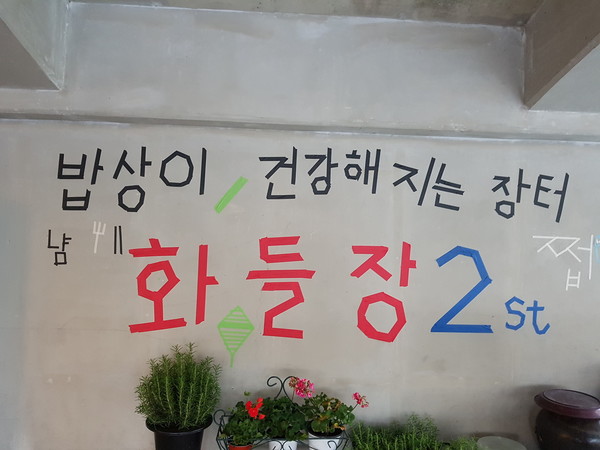 밥상이 건강해지는 장터
냠 화들장 2st 쩝